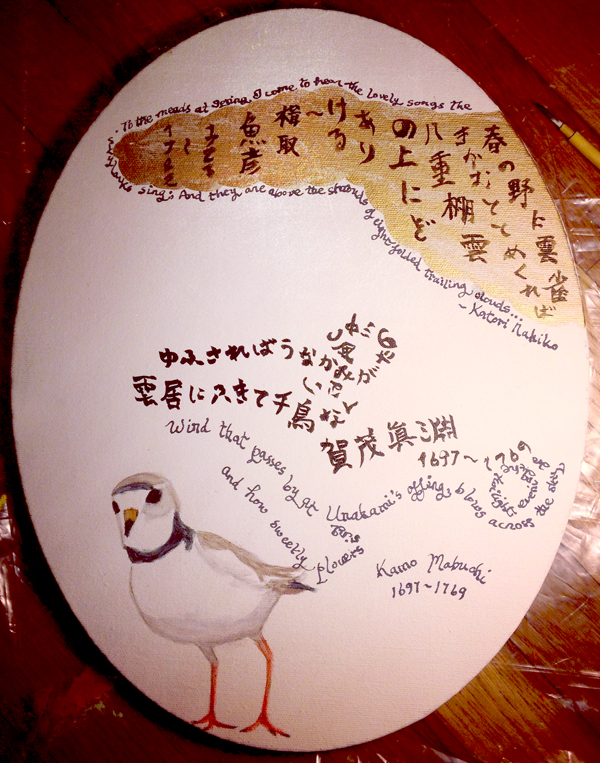 To the meads at Spring, I come to hear the lovely songs the skylarks sing; And they are above the strands of eight-folded trailing clouds...
~ Katori Nahiko
春の野に雲雀
きかむとてめくれば
八重棚雲
の上にど
あり
ける
~
取
魚彦
ゆふさればうなかみがたの
風
雲居にふきて千鳥なく
賀茂眞淵
1697~1769
Wind that passes by at Unakami's offing, blows across the skies
and how sweetly plovers
Kamo Mabuchi
1697~1769